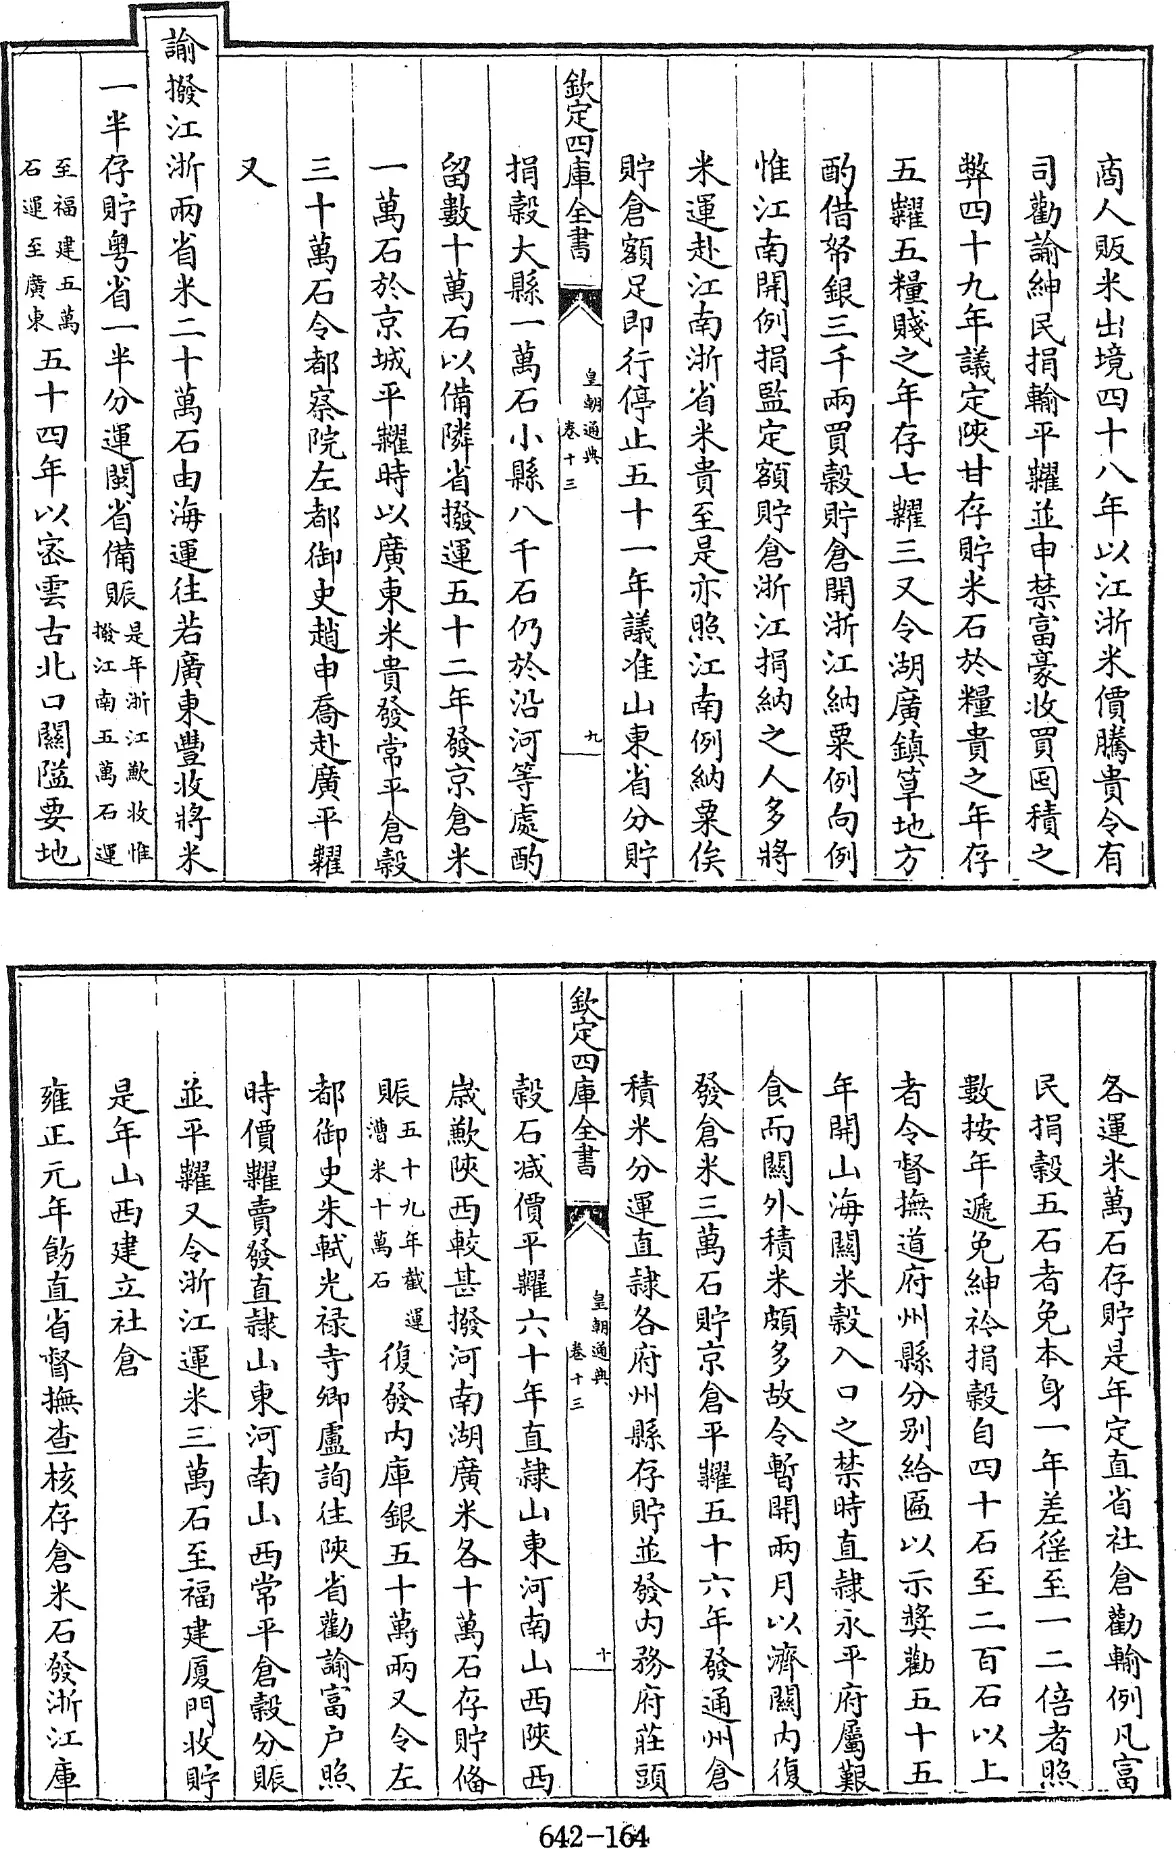 商人販米出境四十八年以江浙米價騰貴令有
司勸諭紳民捐輸平糶並申禁富豪收買囤積之
弊四十九年議定陜甘存貯米石於糧貴之年存
五糶五糧賤之年存七糶三又令湖廣鎮筸地方
酌借帑銀三千兩買穀貯倉開浙江納粟例向例
惟江南開例捐監定額貯倉浙江捐納之人多將
米運赴江南浙省米貴至是亦照江南例納粟俟
貯倉額足即行停止五十一年議准山東省分貯
欽定四庫全書
皇朝通典
卷十三
九
捐穀大縣一萬石小縣八千石仍於沿河等處酌
留數十萬石以備隣省撥運五十二年發京倉米
一萬石於京城平糶時以廣東米貴發常平倉穀
三十萬石令都察院左都御史趙申喬赴廣平糶
又
諭撥江浙兩省米二十萬石由海運往若廣東豐收將米
一半存貯粤省一半分運閩省備賑是年浙江歉收惟
撥江南五萬石運
至福建五萬
石運至廣東五十四年以宻雲古北口關隘要地
各運米萬石存貯是年定直省社倉勸輸例凡富
民捐穀五石者免本身一年差徭至一二倍者照
數按年遞免紳衿捐穀自四十石至二百石以上
者令督撫道府州縣分别給匾以示奬勸五十五
年開山海關米穀入口之禁時直隷永平府屬艱
食而關外積米頗多故令暫開兩月以濟關内復
發倉米三萬石貯京倉平糶五十六年發通州倉
積米分運直隷各府州縣存貯並發内務府莊頭
欽定四庫全書
皇朝通典
卷十三
十
穀石减價平糶六十年直隷山東河南山西陜西
歳歉陜西較甚撥河南湖廣米各十萬石存貯備
賑五十九年截運
漕米十萬石復發内庫銀五十萬兩又令左
都御史朱軾光禄寺卿盧詢往陜省勸諭富户照
時價糶賣發直隷山東河南山西常平倉穀分賑
並平糶又令浙江運米三萬石至福建厦門收貯
是年山西建立社倉
雍正元年飭直省督撫查核存倉米石發浙江庫
642-164